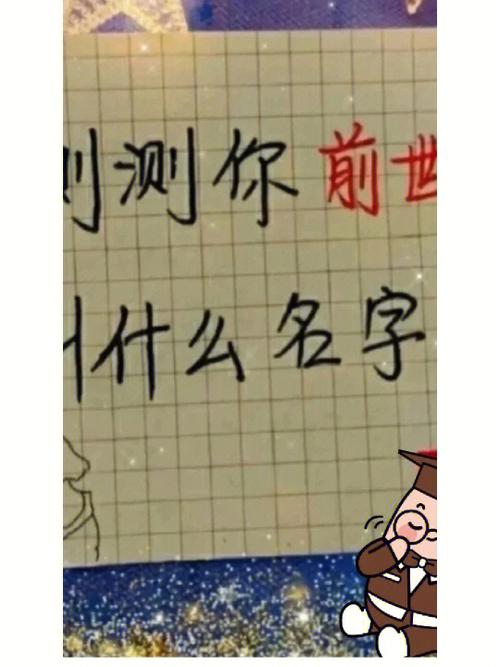 测你前世
什么名字